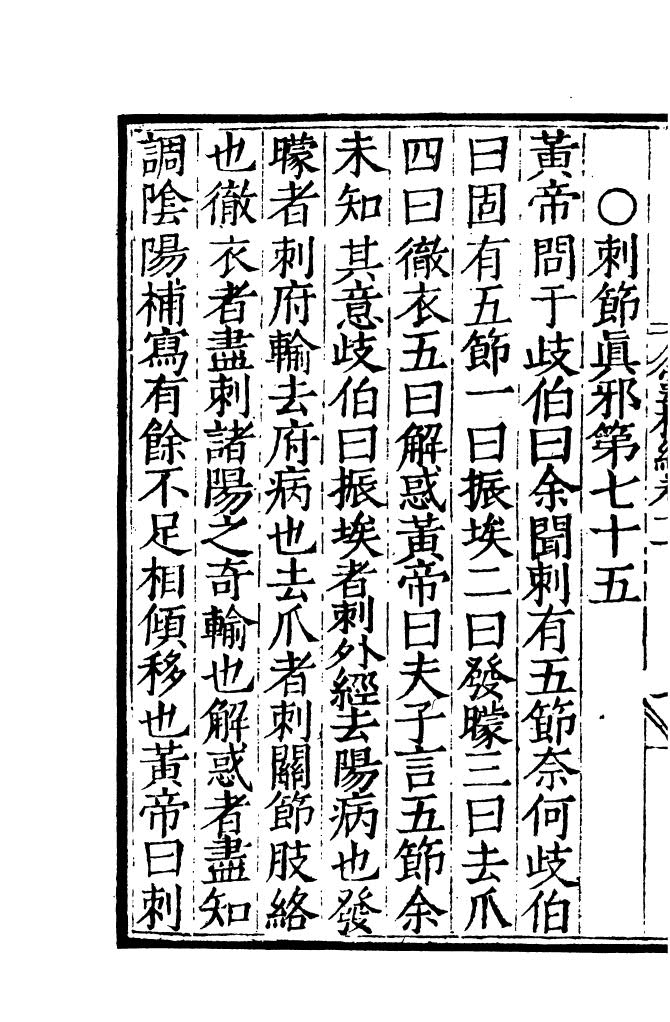 ○刺節眞邪第七十五
黃帝問于歧伯曰余聞刺有五節奈何歧伯
曰固有五節一曰振埃二曰發矇三曰去爪
四曰徹衣五曰解惑黃帝曰夫子言五節余
未知其意歧伯曰振埃者刺外經去陽病也發
矇者刺府輸去府病也去爪者刺關節肢絡
也徹衣者盡刺諸陽之奇輸也解惑者盡知
調陰陽補寫有餘不足相傾移也黃帝曰刺